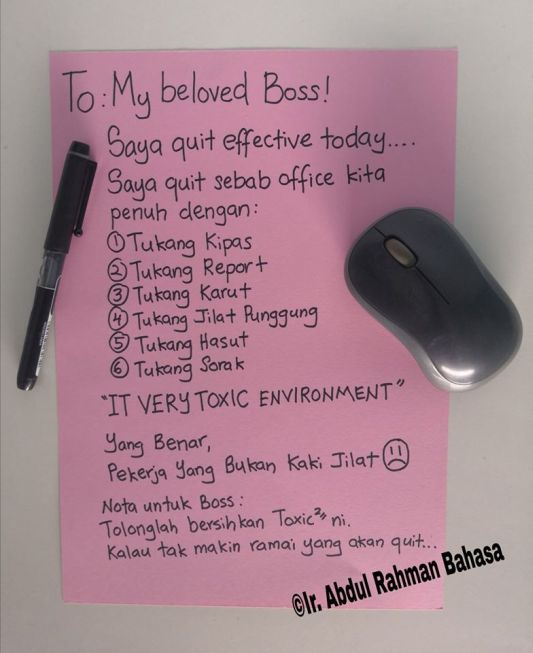 To: My beloved Boss!
Saya quit effective today....
Saya quit sebab office kita
penuh dengan:
① Tukang Kipas
② Tukang Report
③ Tukang Karut
④ Tukang Jilat Punggung
⑤ Tukang Hasut
⑥ Tukang Sorak
"IT VERY TOXIC ENVIRONMENT"
Yang Benar,
Pekerja Yang Bukan Kaki Jilat
Nota untuk Boss:
Tolonglah bersihkan Toxic²" ni.
Kalau tak makin ramai yang akan quit...
©Ir. Abdul Rahman Bahasa